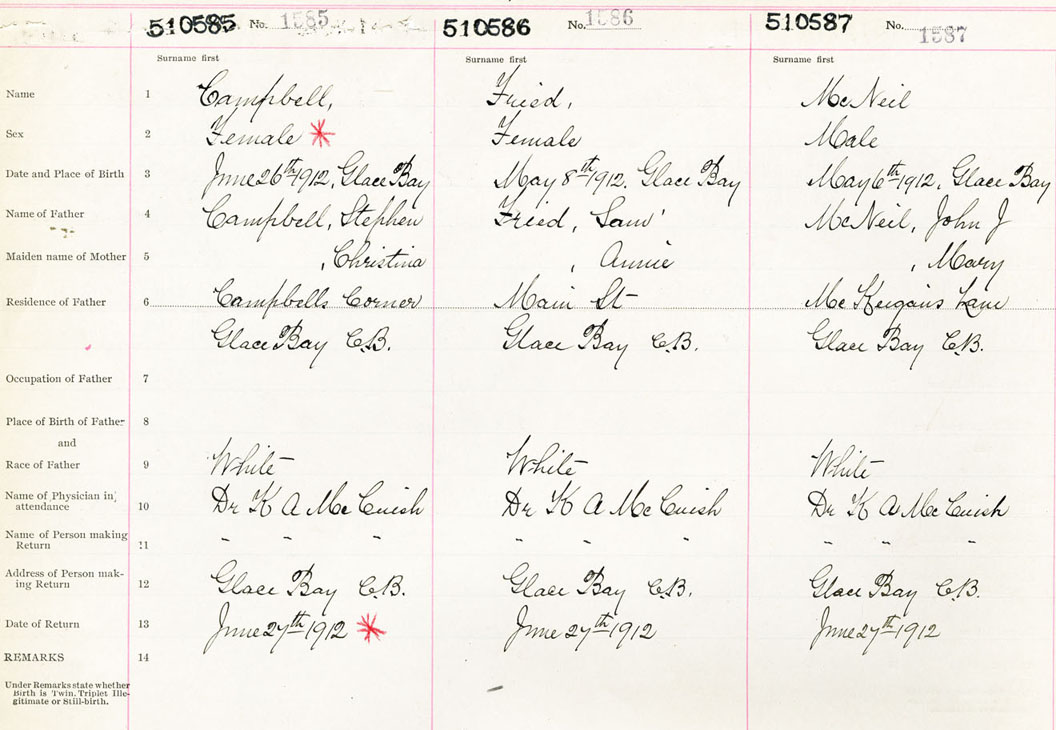 510585 No. 1585 510586 No. 1586 510587 No. 1587
Surname first Surname first Surname first
Name 1 Campbell, Fried, McNeil
Sex 2 Female Female Male
Date and Place of Birth 3 June 26th 1912, Glace Bay May 8th 1912. Glace Bay May 6th 1912, Glace Bay
Name of Father 4 Campbell, Stephen Fried, Sam' McNeil, John J
Maiden name of Mother 5 , Christina , Annie , Mary
Residence of Father 6 Campbells Corner Main St Mc Lane
Glace Bay C.B. Glace Bay C.B. Glace Bay C.B.
Occupation of Father 7
Place of Birth of Father 8
and
Race of Father 9 White White White
Name of Physician in
attendance 10 Dr K A McCuish Dr K A McCuish Dr K A McCuish
Name of Person making
Return 11 " " " " " " " " "
Address of Person mak-
ing Return 12 Glace Bay C.B. Glace Bay C.B. Glace Bay C.B.
Date of Return 13 June 27th 1912 June 27th 1912 June 27th 1912
REMARKS 14
Under Remarks state whether
Birth is Twin. Triplet Ille-
gitimate or Still-birth.